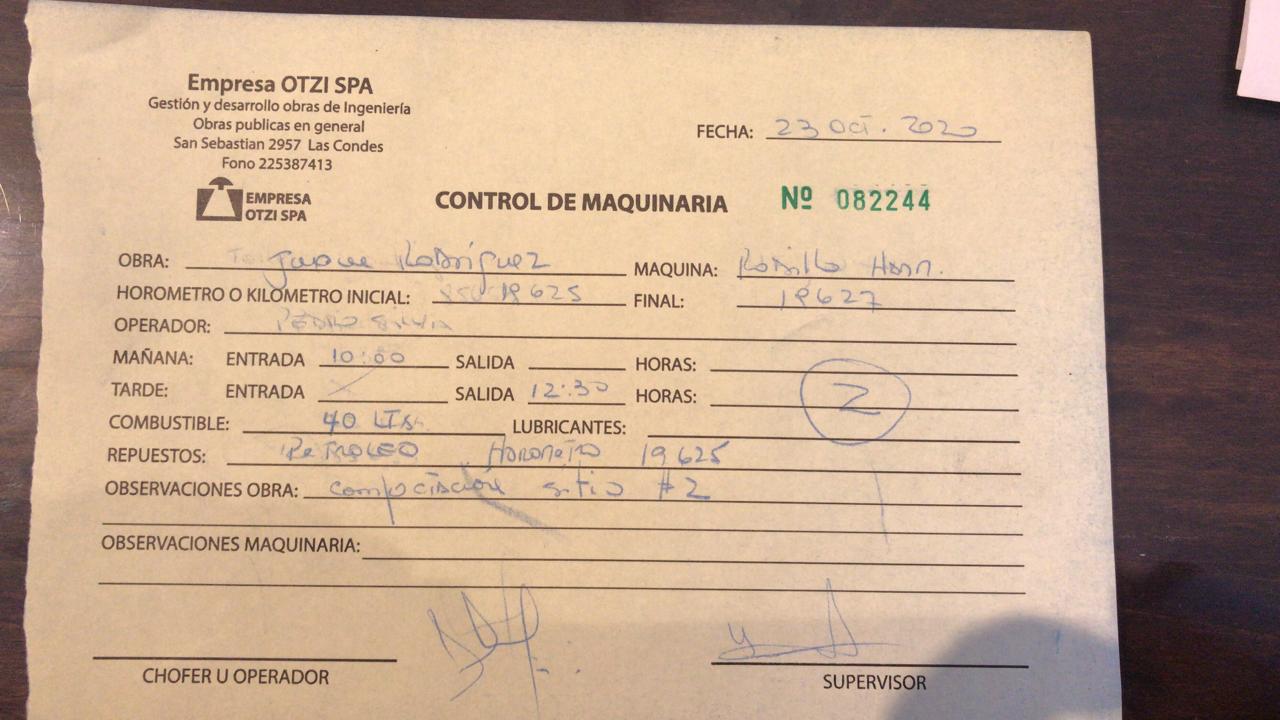 Empresa OTZI SPA
Gestión y desarrollo obras de Ingeniería
Obras publicas en general
San Sebastian 2957 Las Condes
Fono 225387413
EMPRESA
OTZI SPA
FECHA: 23 Oct. 2020
CONTROL DE MAQUINARIA Nº 082244
OBRA: Rodríguez MAQUINA: Rodillo Ham.
HOROMETRO O KILOMETRO INICIAL: 19625 FINAL: 19627
OPERADOR: PEDRO SILVA
MAÑANA: ENTRADA 10:00 SALIDA HORAS:
TARDE: ENTRADA SALIDA 12:30 HORAS: 2
COMBUSTIBLE: 40 LTS. LUBRICANTES:
REPUESTOS: PETROLEO HOROMETRO 19625
OBSERVACIONES OBRA: sitio #2
OBSERVACIONES MAQUINARIA:
CHOFER U OPERADOR
SUPERVISOR